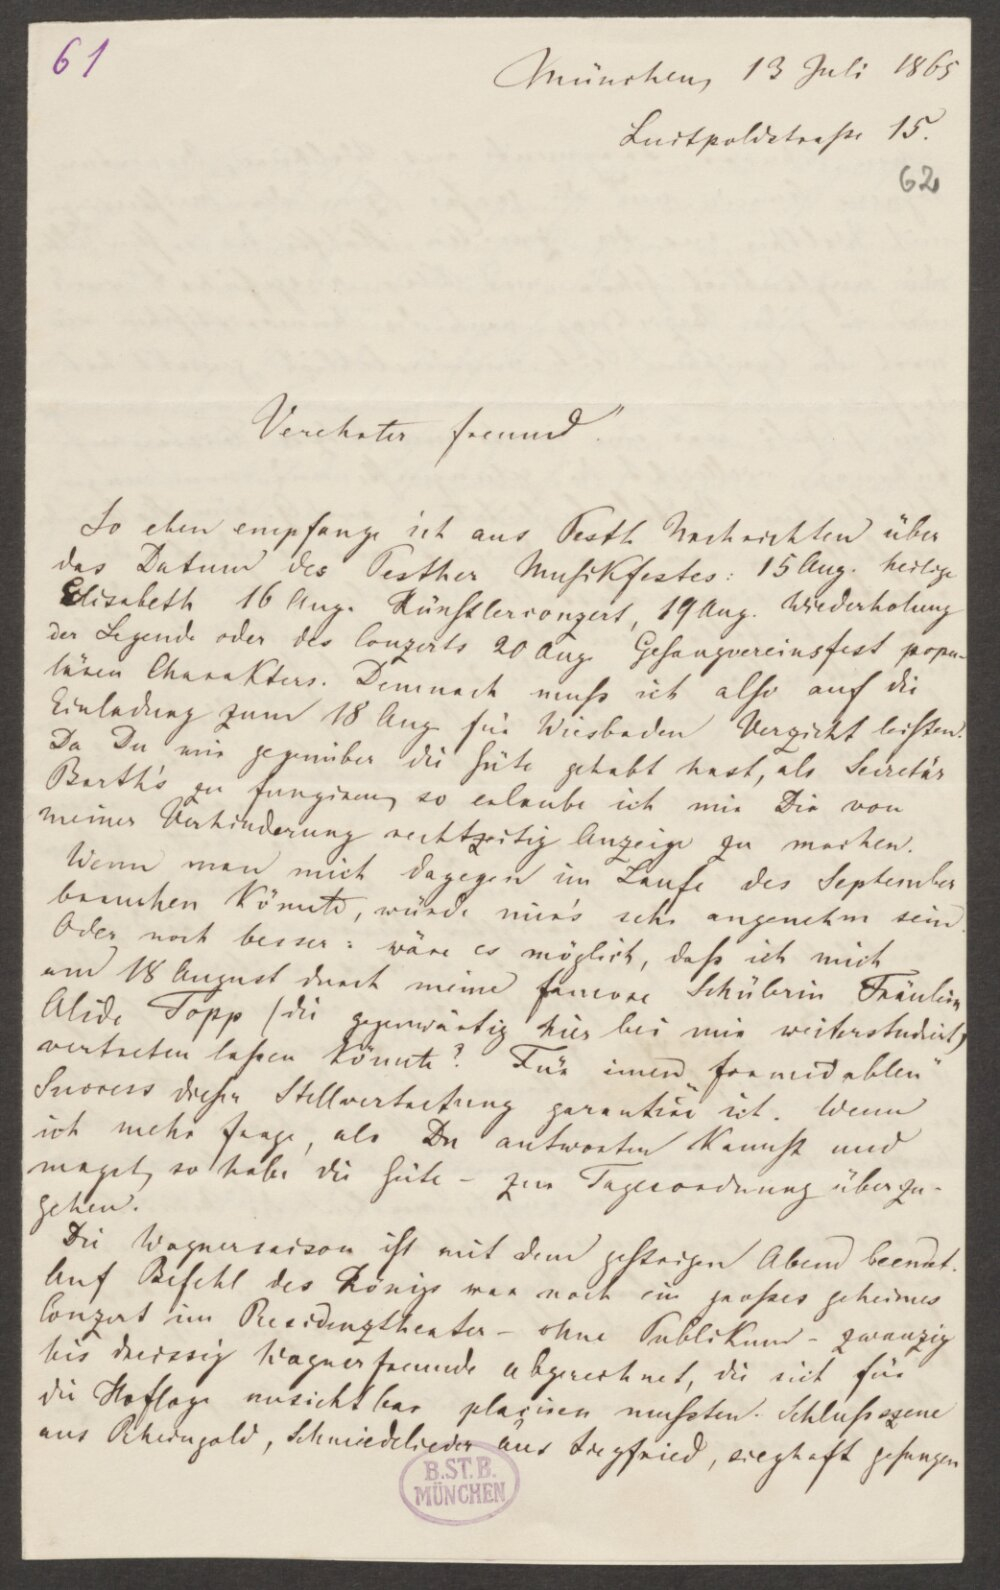 61
München, 13 Juli 1865
Luitpoldstraße 15.
62
Verehrter Freund!
So eben empfange ich aus Pesth Nachrichten über
das Datum des Pesther Musikfestes: 15 Aug. heilige
Elisabeth 16 Aug. Künstlerconzert, 19 Aug. Wiederholung
der Legende oder des Conzerts 20 Aug. Gesangvereinsfest popu-
lären Charakters. Demnach muß ich also auf die
Einladung zum 18 Aug für Wiesbaden Verzicht leisten.
Da Du mir gegenüber die Güte gehabt hast, als Secretär
Barth's zu fungiren, so erlaube ich mir Dir von
meiner Verhinderung rechtzeitig Anzeige zu machen.
Wenn man mich dagegen im Laufe des September
brauchen könnte, würde mir's sehr angenehm sein.
Oder noch besser: wäre es möglich, daß ich mich
am 18 August durch meine famose Schülerin Fräulein
Alide Topp (die gegenwärtig hier bei mir weiterstudirt)
vertreten laßen könnte? Für einen „formidablen"
Success dieser Stellvertretung garantire ich. Wenn
ich mehr frage, als Du antworten kannst und
magst, so habe die Güte – zur Tagesordnung überzu-
gehen.
Die Wagnersaison ist mit dem gestrigen Abend beendet.
Auf Befehl des Königs war noch ein großes geheimes
Conzert im Residenztheater – ohne Publikum – zwanzig
bis dreissig Wagnerfreunde abgerechnet, die sich für
die Hofloge unsichtbar placiren mußten. Schlußszene
aus Rheingold, Schmiedelieder aus Siegfried, sieghaft gesungen
B.ST.B.
MÜNCHEN